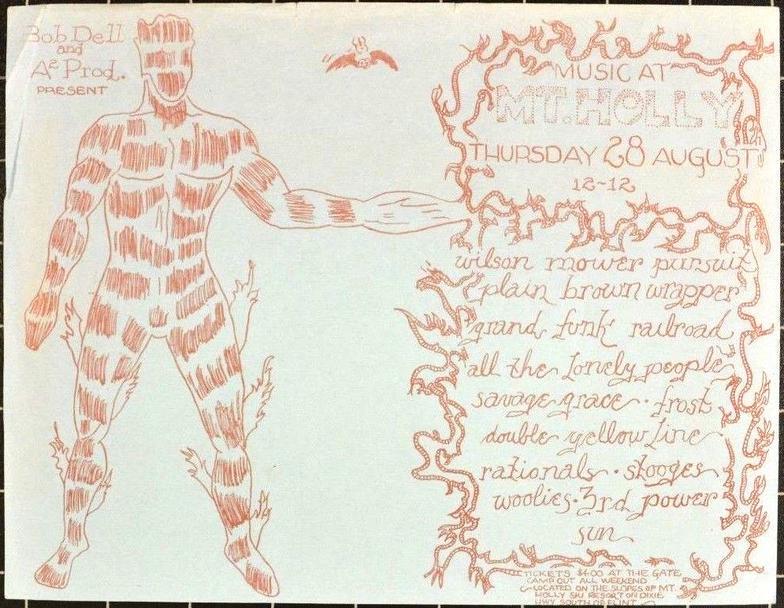 Bob Dell
and
A² Prod.
PRESENT
MUSIC AT
MT. HOLLY
THURSDAY 28 AUGUST
12~12
wilson mower pursuit
plain brown wrapper
grand funk railroad
all the lonely people
savage grace · frost
double yellow line
rationals · stooges
woolies · 3rd power
sun
TICKETS $4.00 AT THE GATE
CAMP OUT ALL WEEKEND
LOCATED ON THE SLOPES OF MT.
HOLLY SKI RESORT ON DIXIE
HWY SOUTH OF FLINT